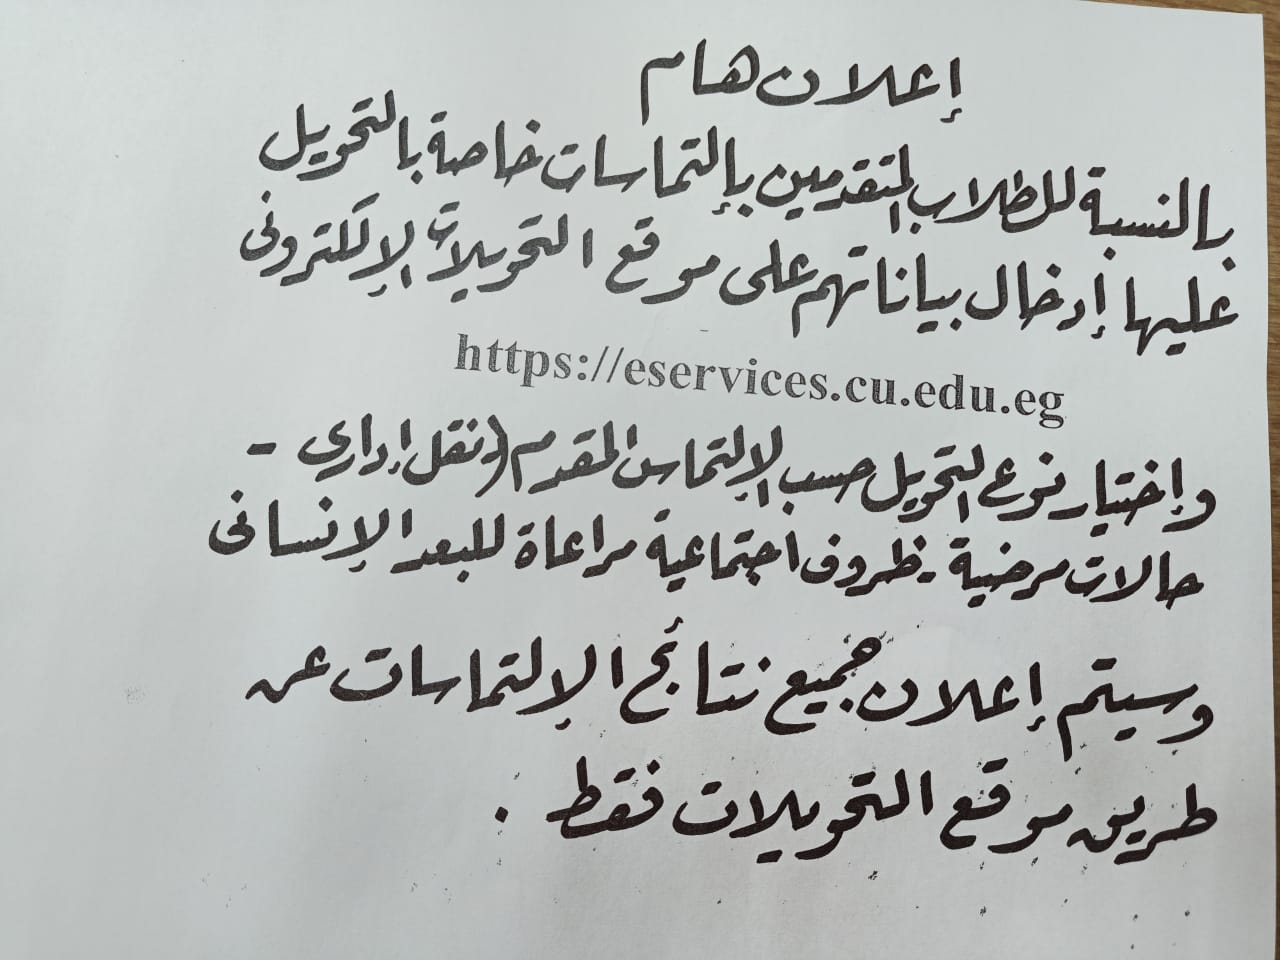 إعلان هام
بالنسبة للطلاب المتقدمين بإلتماسات خاصة بالتحويل
عليها إدخال بياناتهم على موقع التحويلات الإلكترونى
https://eservices.cu.edu.eg
وإختيار نوع التحويل حسب الإلتماس المقدم (نقل إداري -
حالات مرضية - ظروف اجتماعية مراعاة للبعد الإنسانى
وسيتم إعلان جميع نتائج الإلتماسات عن
طريق موقع التحويلات فقط .